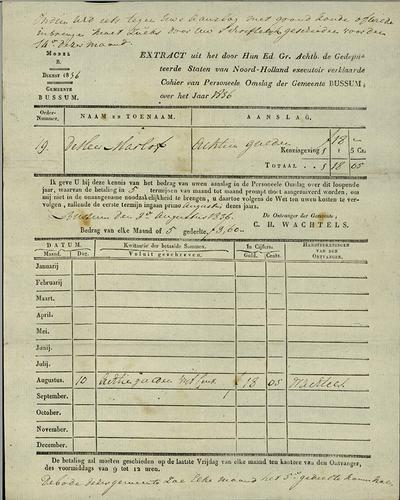 MODEL
B.
DIENST 1836
GEMEENTE
BUSSUM.
14e dezer maand.
EXTRACT uit het door Hun Ed. Gr. Achtb. de Gedepu-
teerde Staten van Noord-Holland executoir verklaarde
Cohier van Personeele Omslag der Gemeente BUSSUM,
over het Jaar 1836
Order-
Nummer.
NAAM EN TOENAAM.
AANSLAG.
19.
Achttien gulden
ƒ 18 -
Kennisgeving ƒ : 5 Cs.
TOTAAL . . ƒ 18 05
Ik geve U bij deze kennis van het bedrag van uwen aanslag in de Personeele Omslag over dit loopende
jaar, waarvan de betaling in 5 termijnen van maand tot maand prompt moet aangezuiverd worden, om
mij niet in de onaangename noodzakelijkheid te brengen, u daartoe volgens de Wet ten uwen koste te ver-
volgen, zullende de eerste termijn ingaan primo Augustus dezes jaars.
Bussum den 3e Augustus 1836.
De Ontvanger der Gemeente,
Bedrag van elke Maand of 5 gedeelte, ƒ 3,60
C. H. WACHTELS.
DATUM.
Maand. Dag.
Kwitantie der betaalde Sommen.
Voluit geschreven.
In Cijfers.
Guld. Cents.
HANDTEEKENINGEN
VAN DEN
ONTVANGER.
Januarij
Februarij
Maart.
April.
Mei.
Junij.
Julij.
Augustus. 10 Achttien gulden vijf Cent ƒ 18 05 Wachtels
September.
October.
November.
December.
De betaling zal moeten geschieden op de laatste Vrijdag van elke maand ten kantore van den Ontvanger,
des voormiddags van 9 tot 12 uren.